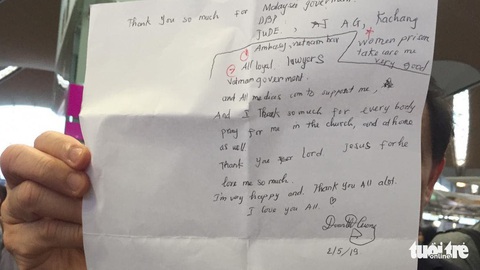 Thank you so much for Malaysian goverment.
DPP
JUDE, AJ AG, Kachang
① Ambassy, vietnam here
women prism
② All loyal, lawyers
take care me
very good
Vietnam government.
and All medias com to support me,
And I Thank so much for every body
pray for me in the church, and at home
as well.
Thank you your Lord Jesus for he
love me so much
I'm very happy and Thank you All alot.
I love you All.
2/5/19
tuổi trẻ
online